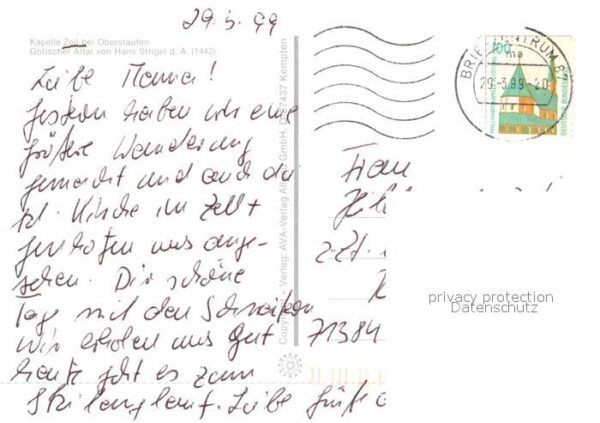 29.3.99
Kapelle Zell bei Oberstaufen
Gotischer Altar von Hans Strigel d. Ä. (1442)
Liebe Mama!
gestern haben wir eine
größere Wanderung
gemacht und auch die
got. Kirche in Zell +
uns ange-
sehen. Die schöne
Tage mit den
wir erholen uns gut
heute geht es zum
Skilanglauf. Liebe Grüße
Verlag: AVA-Verlag GmbH, 87437 Kempten
BRIEFZENTRUM 87
29.-3.99-20
100
DEUTSCHE BUNDESPOST
Frau
z.Zt.
71384
privacy protection
Datenschutz